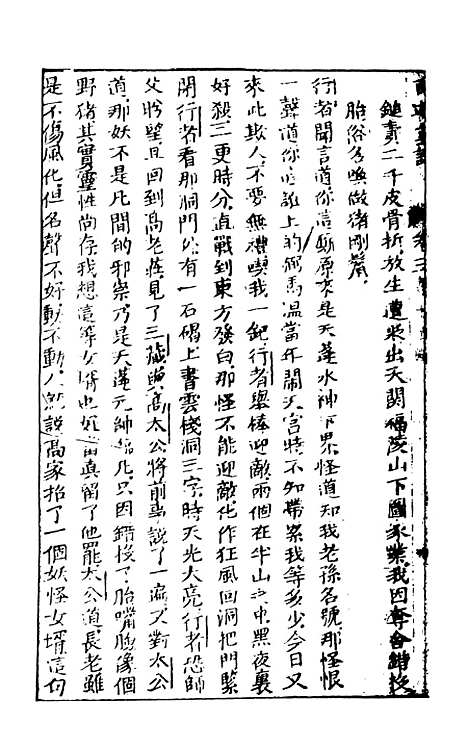 西遊真詮
鎚責二千皮骨折放生遭貶出天關福陵山下圖家業我因有罪錯投
胎俗名喚做猪剛鬣
行者聞言道你這厮原來是天蓬水神下界怪道知我老孫名號那怪恨
一聲道你這誑上的弼馬溫當年鬧天宮時不知帶累我等多少今日又
來此欺人不要無禮喫我一鈀行者舉棒迎敵兩個在半山之中黑夜裏
好殺二更時分直戰到東方發白那怪不能迎敵化作狂風回洞把門緊
閉行者看那洞門外有一石碣上書雲棧洞三字時天光大亮行者恐師
父盼望且回到高老莊見了三藏與高太公將前事說了一遍又對太公
道那妖不是凡間的邪祟乃是天蓬元帥臨凡只因錯投了胎嘴臉像個
野猪其實靈性尚存我想這等女壻也好留真個留了他罷太公道長老雖
是不傷風化但名聲不好動不動人就說高家招了一個妖怪女壻這句